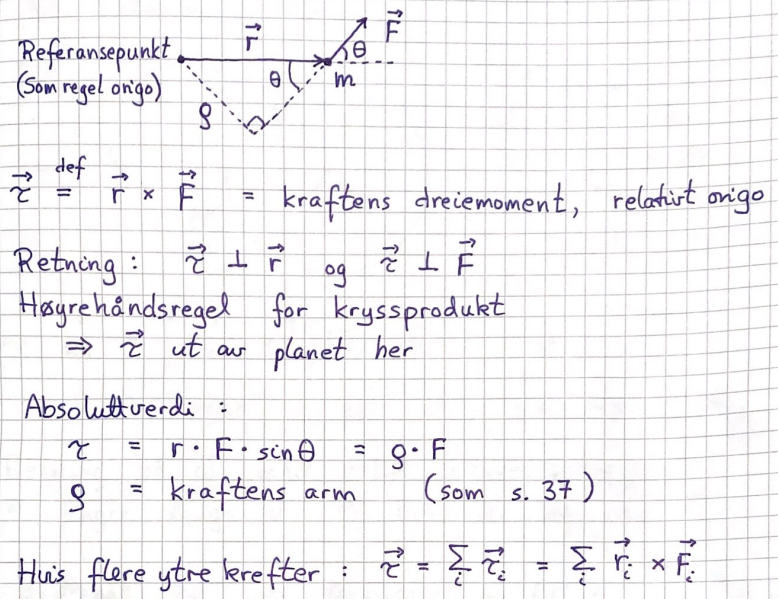 Referansepunkt r⃗ F⃗
(Som regel origo) θ θ m
ρ
τ⃗ def= r⃗ × F⃗ = kraftens dreiemoment, relativt origo
Retning : τ⃗ ⊥ r⃗ og τ⃗ ⊥ F⃗
Høyrehåndsregel for kryssprodukt
⇒ τ⃗ ut av planet her
Absoluttverdi :
τ = r · F · sinθ = ρ · F
ρ = kraftens arm (som s. 37)
Hvis flere ytre krefter : τ⃗ = Σ_i τ⃗_i = Σ_i r⃗_i × F⃗_i